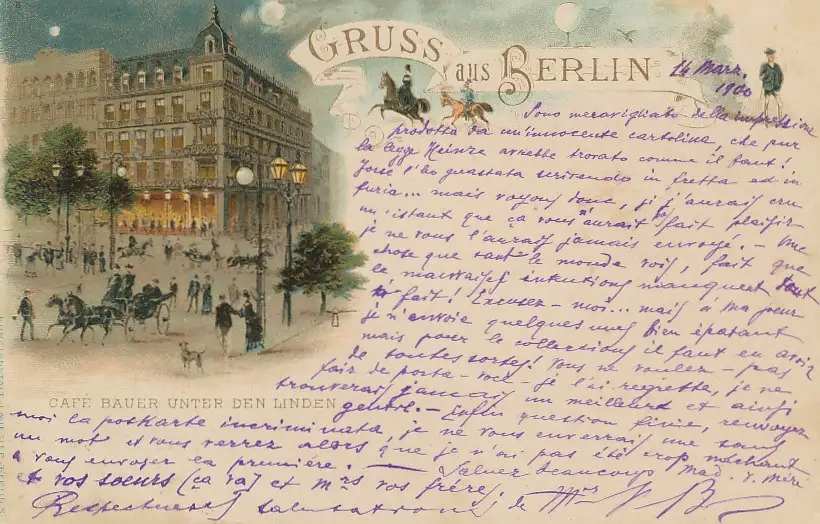 GRUSS aus BERLIN
14 Marz. 1900
Sono meravigliato della impressione
prodotta da un'innocente cartolina, che pur
la legge Heinze avrebbe trovato comme il faut!
Forse l'ho guastata scrivendo in fretta ed in
furia... mais voyons donc, si j'aurais cru
un instant que ça vous aurait fait plaisir
je ne vous l'aurais jamais envoyé. – Une
chose que tout le monde voit, fait que
les mauvaises intentions manquent tout
à fait! Excusez-moi... mais à ma
je n'envoie quelques unes bien épatant
mais pour les collections il faut en avoir
de toutes sortes! Vous ne voulez-pas
fair de porta-voce – je l'ai regretté, je ne
CAFÉ BAUER UNTER DEN LINDEN
trouverais jamais un meilleur et ainsi
gentil. – Enfin question finie, renvoyez
moi la postkarte incriminata, je ne vous enverrais une sans
un mot et vous verrez alors que je n'ai pas été trop méchant
à vous envoyer la première. — Saluez beaucoup Mad. v. mère
et vos soeurs (ça va) et mrs vos frères.
Respectueuses salutations de